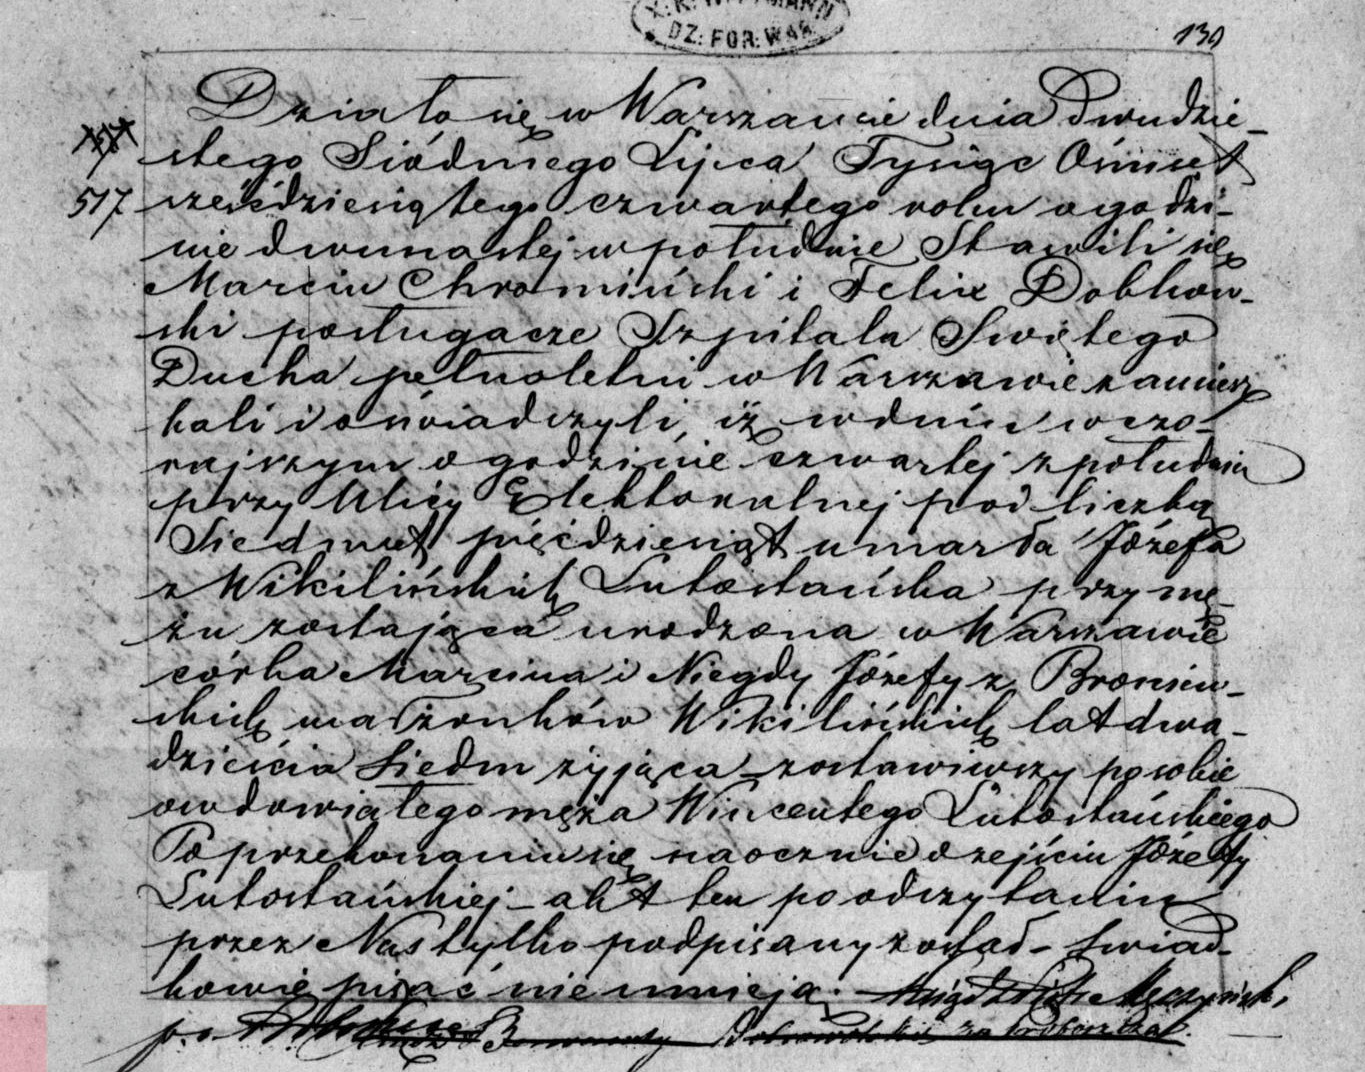 DZ: FOR: WAR
139
Działo się w Warszawie dnia Dwudzie-
517 stego Siódmego Lipca Tysiąc Ośmset
sześćdziesiątego czwartego roku o godzi-
nie dwunastej w południe Stawili się
Marcin Chromiński i Felix Dobkow-
ski posługacze Szpitala Swiętego
Ducha pełnoletni w Warszawie zamiesz
kali i oświadczyli, iż w dniu wczo-
rajszym o godzinie czwartej z południa
przy Ulicy Elektoralnej pod liczbą
Siedmset pięćdziesiąt umarła Józefa
z Wikilińskich Lutostańska przy mę-
żu zostająca urodzona w Warszawie
córka Marcina i Niegdy Józefy z Broniew-
skich małżonków Wikilińskich lat dwa-
dzieścia siedm żyjąca zostawiwszy po sobie
owdowiałego męża Wincentego Lutostańskiego
Po przekonaniu się naocznie o zejściu Józefy
Lutostańskiej - akt ten po odczytaniu
przez Nas tylko podpisany został - świad-
kowie pisać nie umieją.